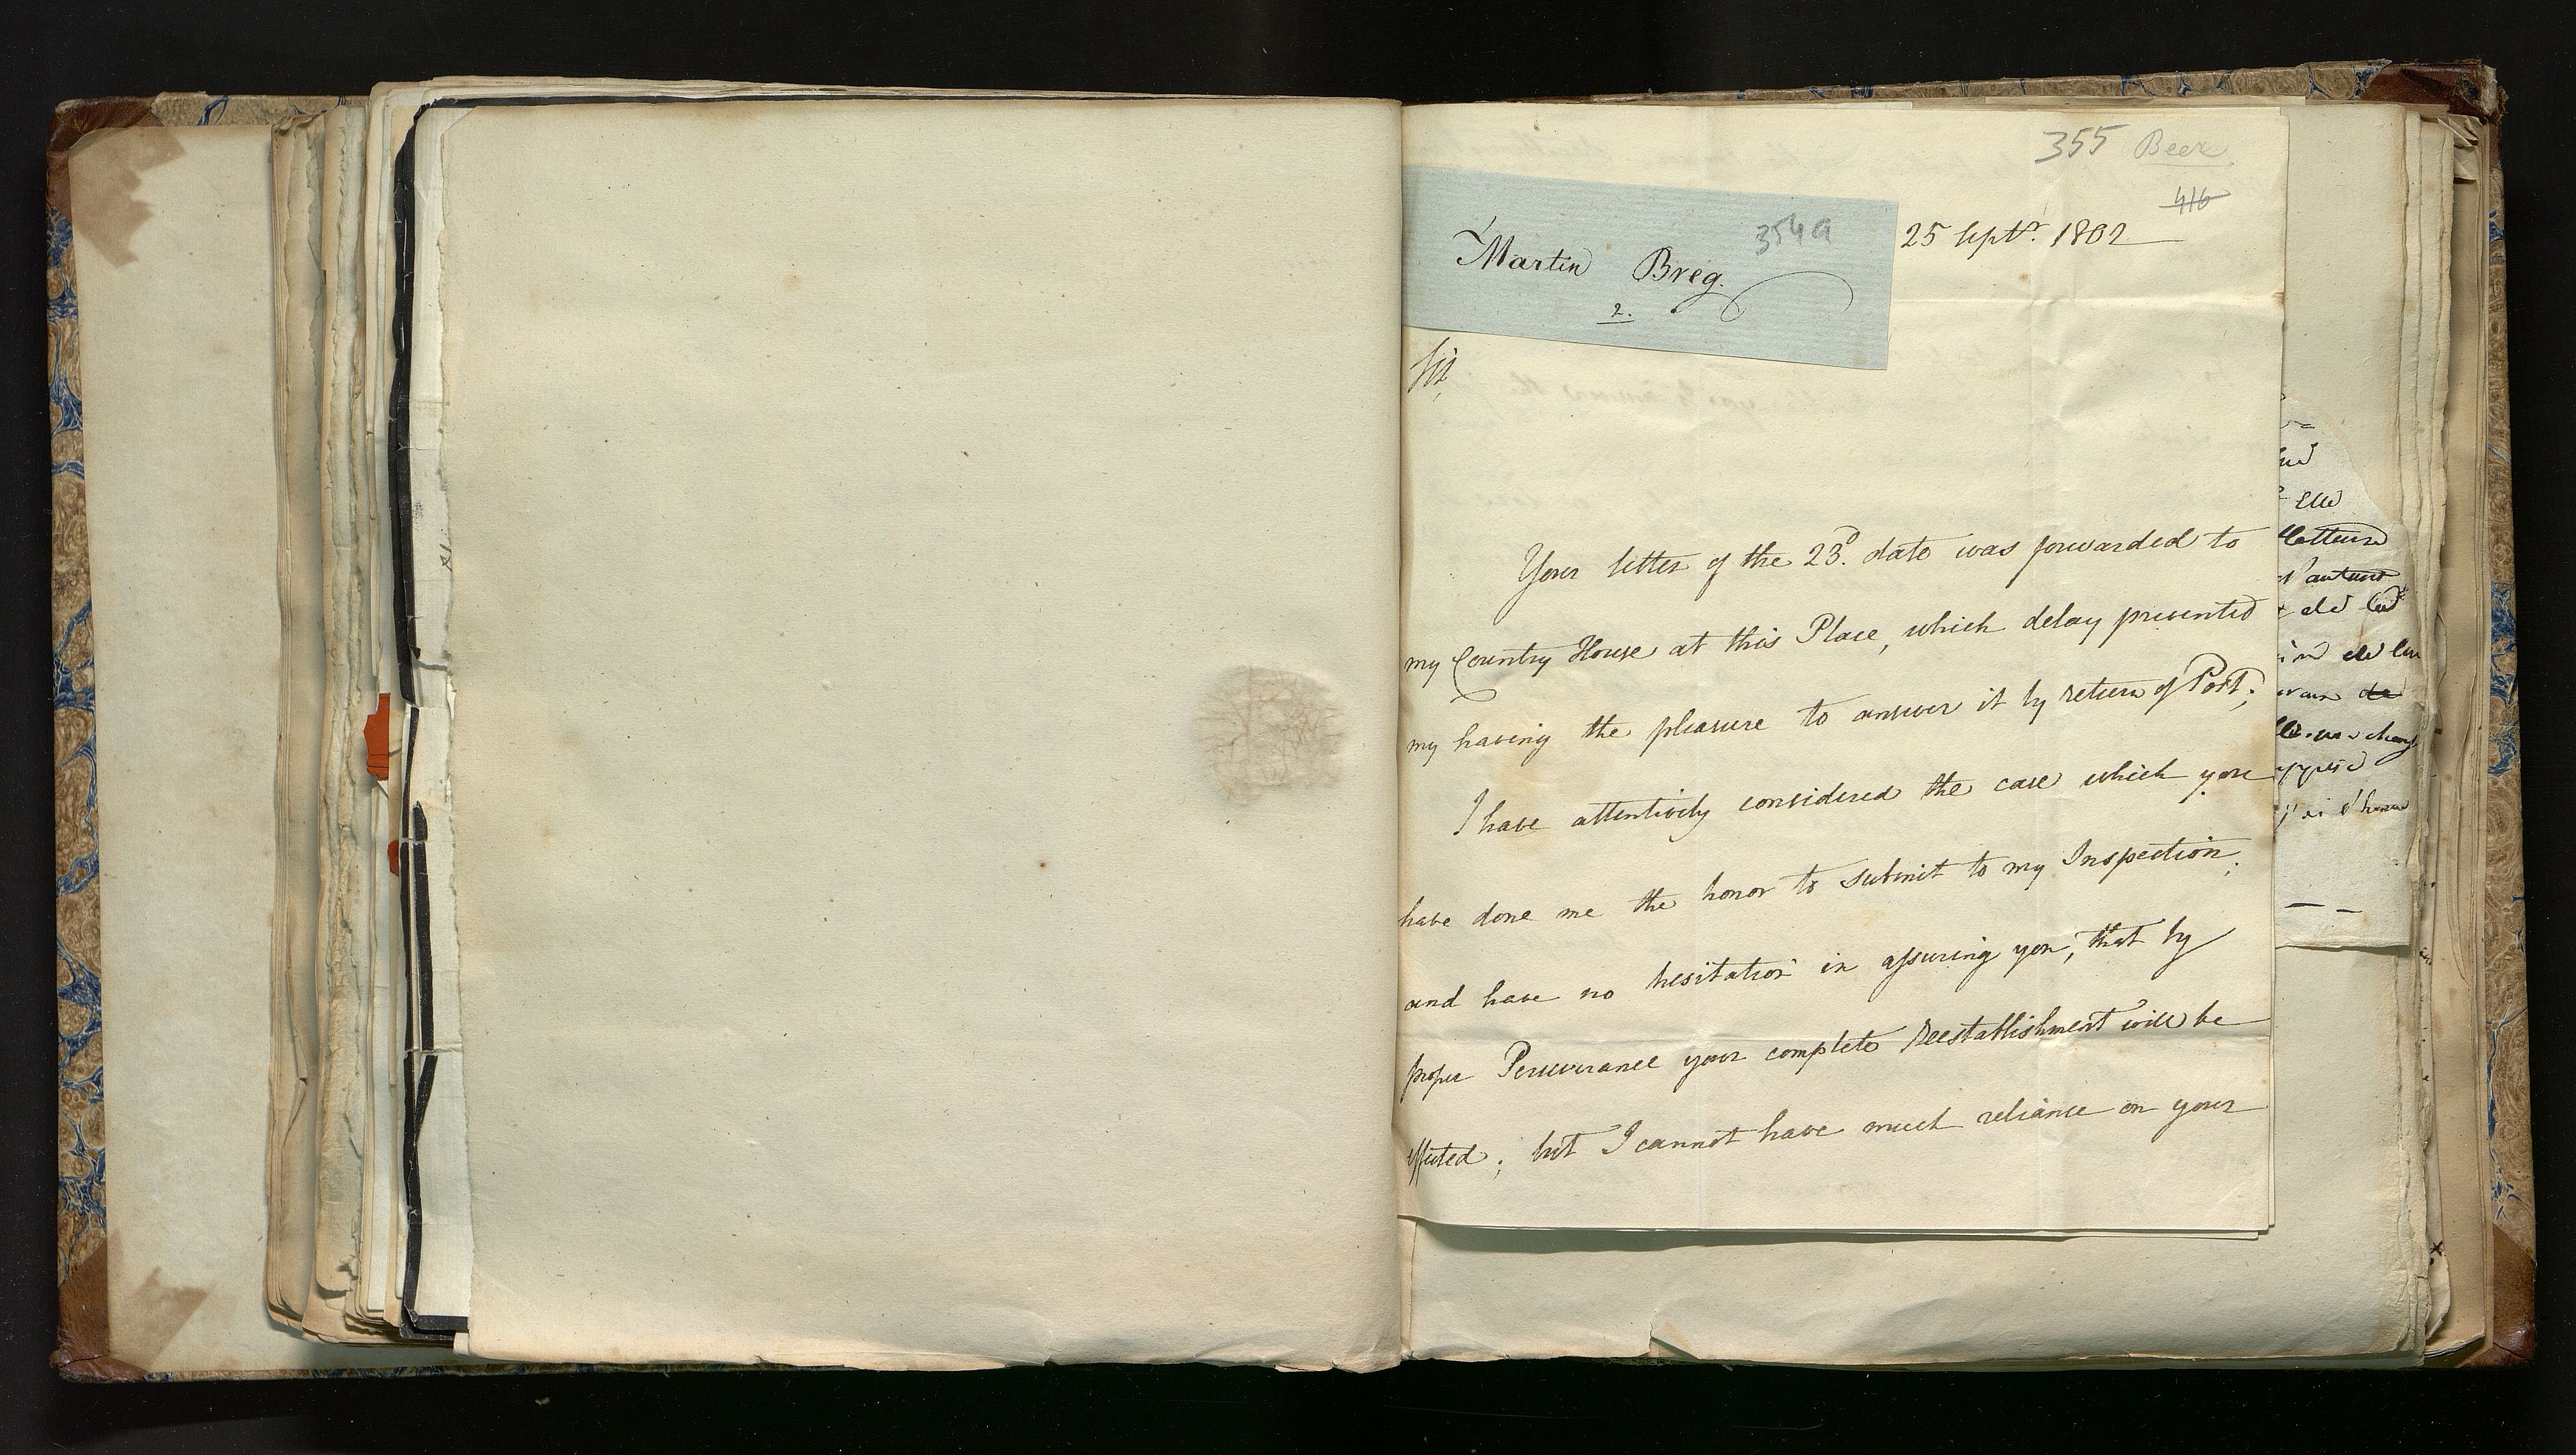 355 Beer
416
354a
Martin Breg.
2.
25 Septr. 1802
Sir,
Your letter of the 23d. date was forwarded to
my Country House at this Place, which delay prevented
my having the pleasure to answer it by return of Post;
I have attentively considered the case which you
have done me the honor to submit to my Inspection;
and have no hesitation in assuring you, that by
proper Perseverance your complete Reestablishment will be
effected; but I cannot have much reliance on your
elle
d'honneur